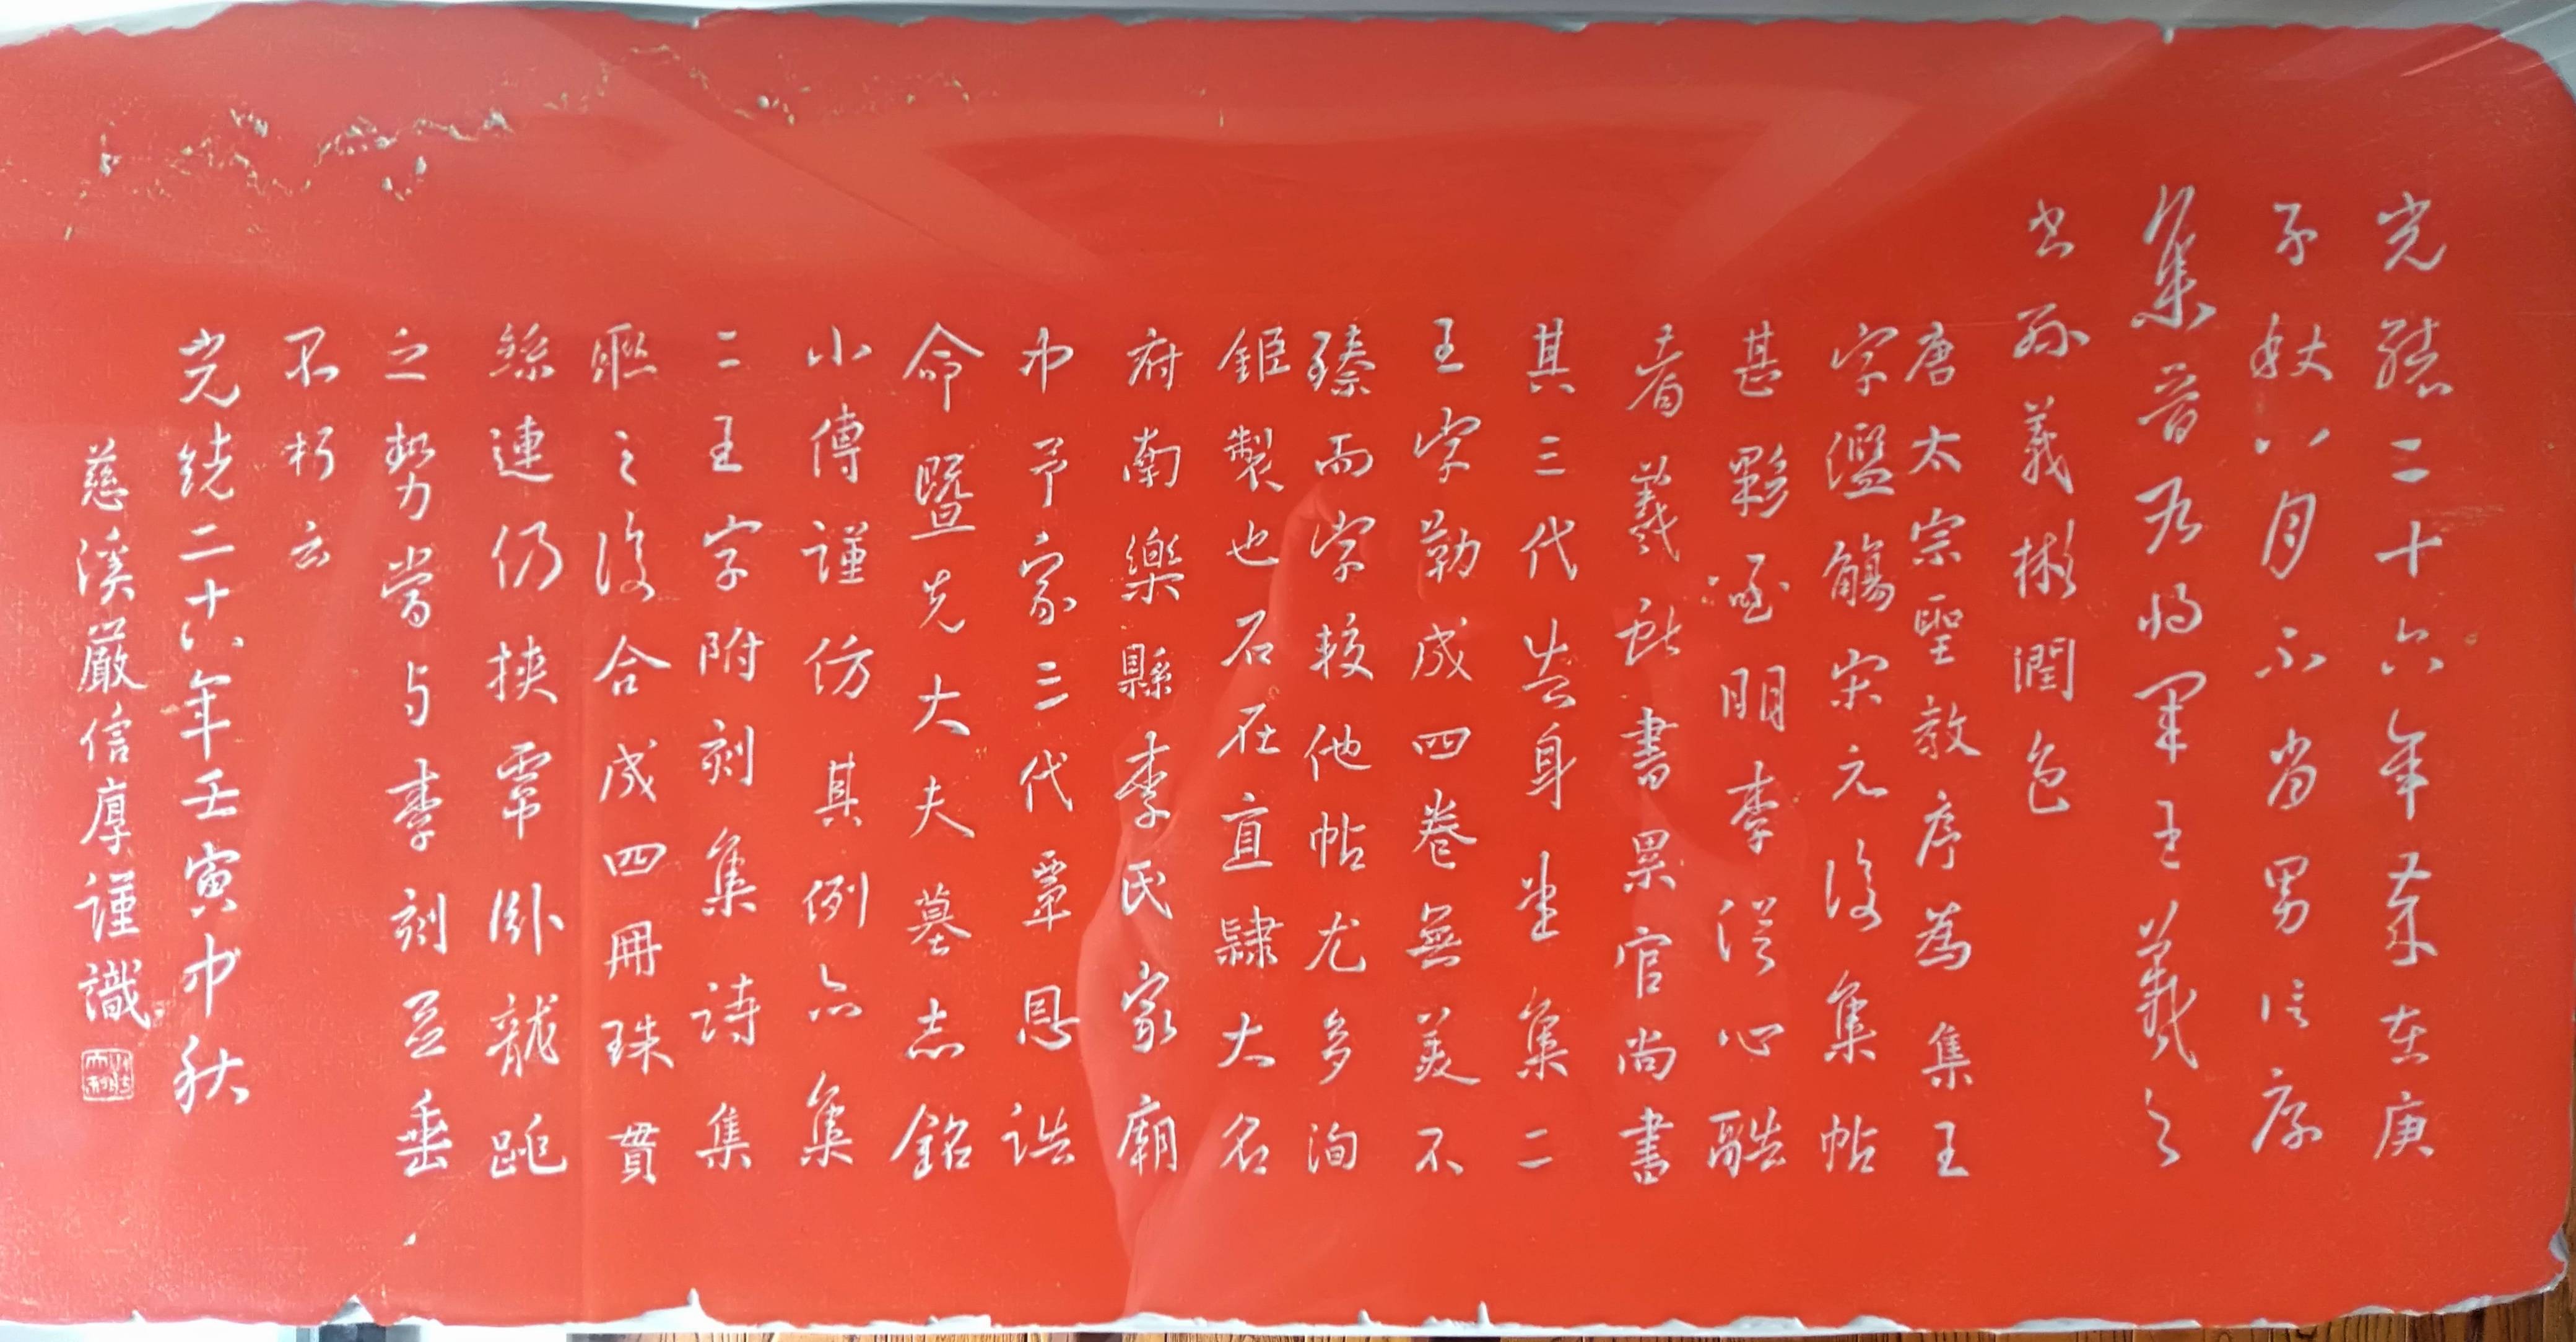 光緒二十六年歲在庚
子秋八月不肖男信厚
集晉右將軍王羲之
書孫義彬潤色
唐太宗聖教序為集王
字濫觴宋元後集帖
甚夥逮明李從心酷
耆羲獻書累官尚書
其三代告身坐集二
王字勒成四卷無美不
臻而字較他帖尤多洵
鉅製也石在直隸大名
府南樂縣李氏家廟
中予家三代覃恩誥
命暨先大夫墓志銘
小傳謹仿其例亦集
二王字附刻集詩集
聯之後合成四冊珠貫
絲連仍挾霏臥龍跳
之勢當与李刻並垂
不朽云
光緒二十八年壬寅中秋
慈溪嚴信厚謹識